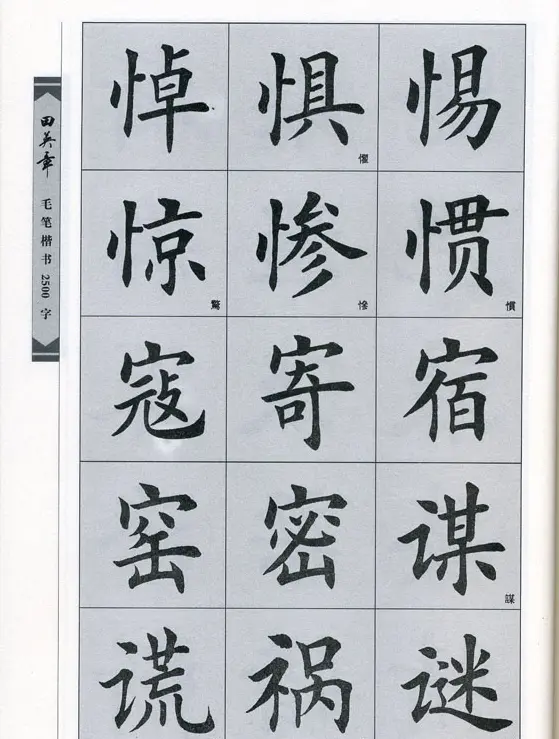 田英章 毛笔楷书2500字
悼 惧 懼 惕
惊 驚 惨 慘 惯 慣
寇 寄 宿
窑 密 谋 謀
谎 祸 谜